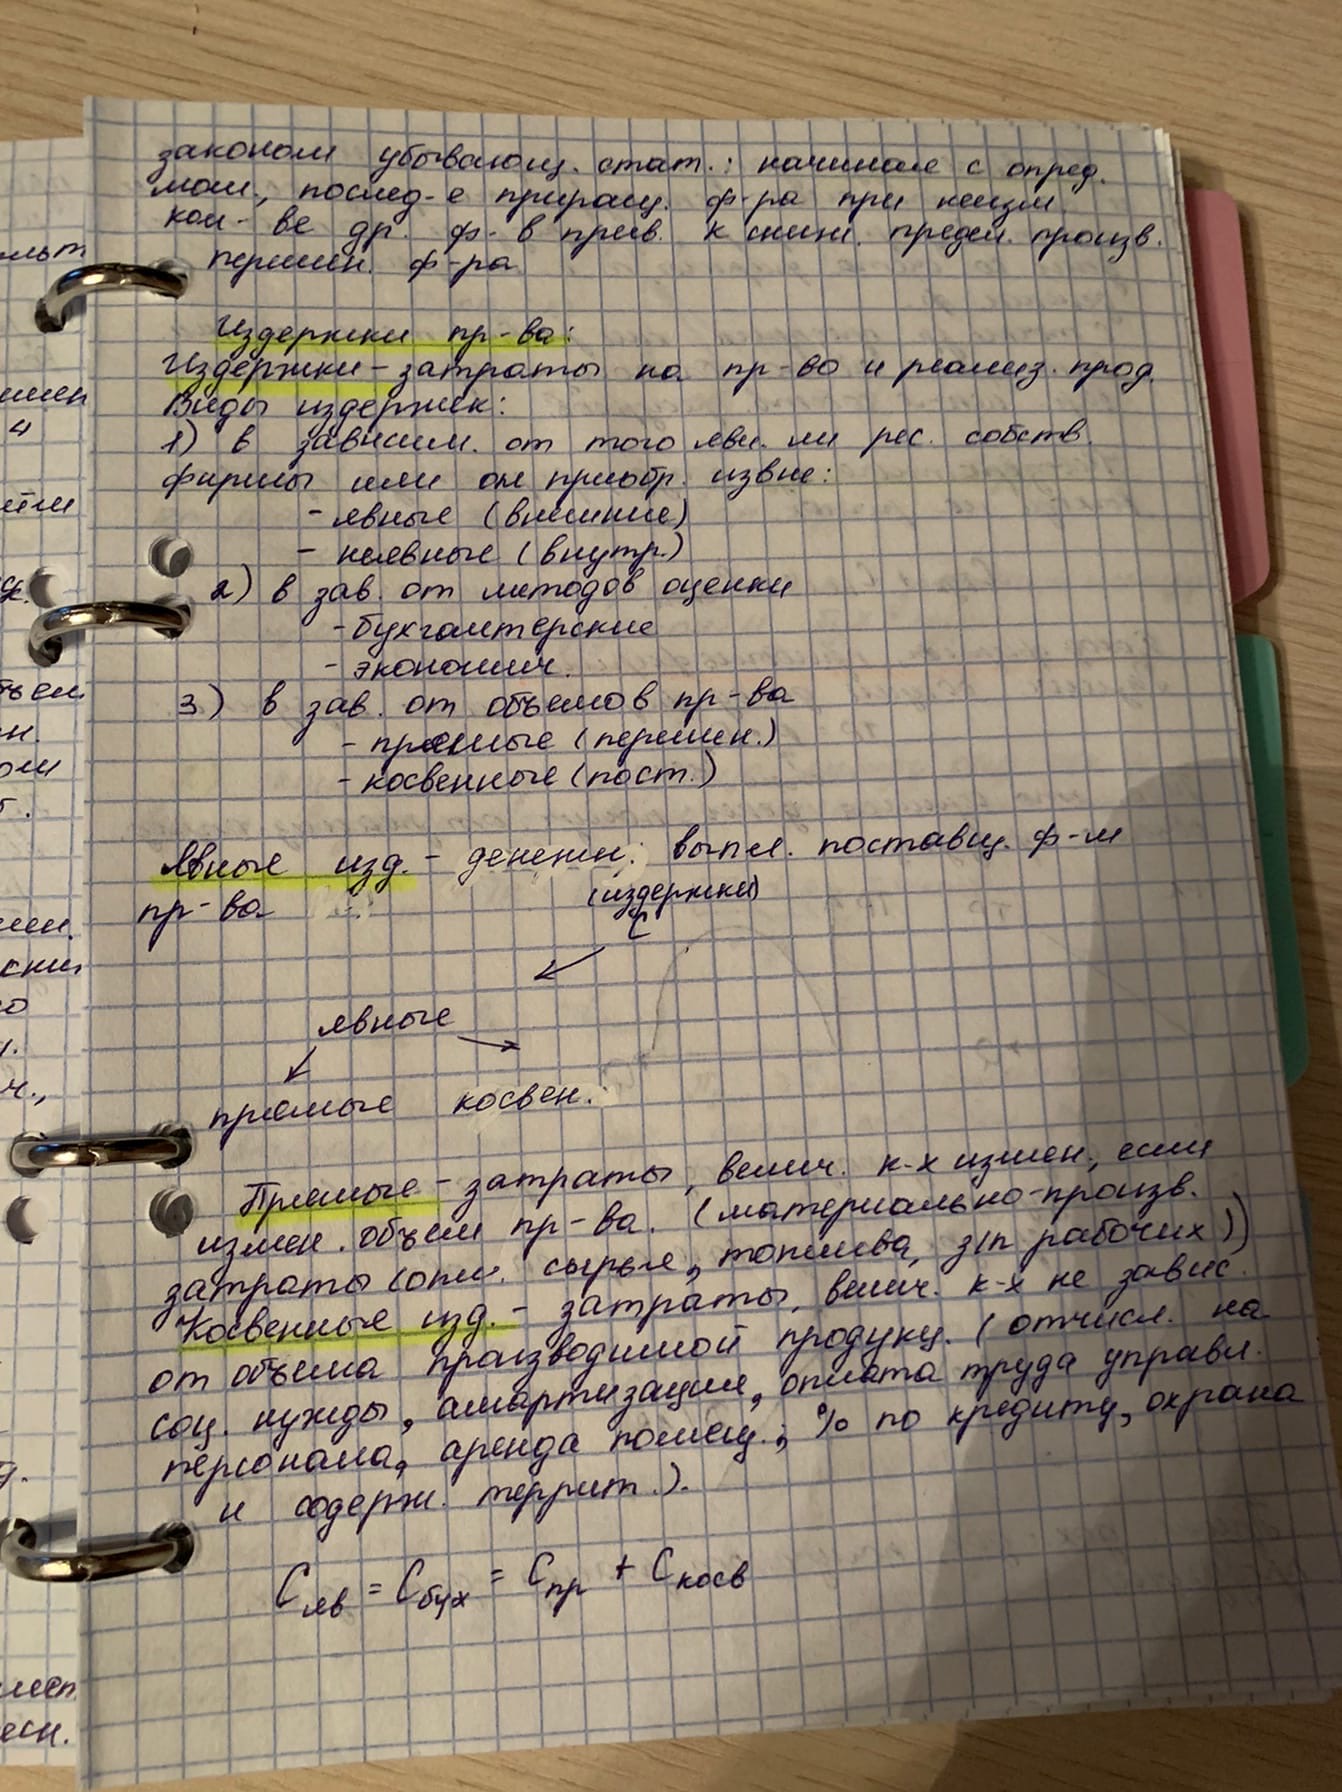 законом убывающ. отдач.: начиная с опред.
мом., послед-е приращ. ф-ра при неизм.
кол-ве др. ф-в прив. к сниж. предел. произв.
перемен. ф-ра
Издержки пр-ва:
Издержки - затраты на пр-во и реализ. прод.
Виды издержек:
1) в зависим. от того явл. ли рес. собств.
фирмы или он приобр. извне:
- явные (внешние)
- неявные (внутр.)
2) в зав. от методов оценки
- бухгалтерские
- экономич.
3) в зав. от объемов пр-ва
- прямые (перемен.)
- косвенные (пост.)
Явные изд. - денежн. выпл. поставщ. ф-м
пр-ва
(издержки)
C
явные
прямые косвен.
Прямые - затраты, велич. к-х измен., если
измен. объем пр-ва. (материально-произв.
затраты (опл. сырья, топлива, з/п рабочих))
Косвенные изд. - затраты, велич. к-х не завис.
от объема производимой продукц. (отчисл. на
соц. нужды, амартизация, оплата труда управл.
персонала, аренда помещ.; % по кредиту, охрана
и содерж. террит.).
C яв = C бух = C пр + C косв